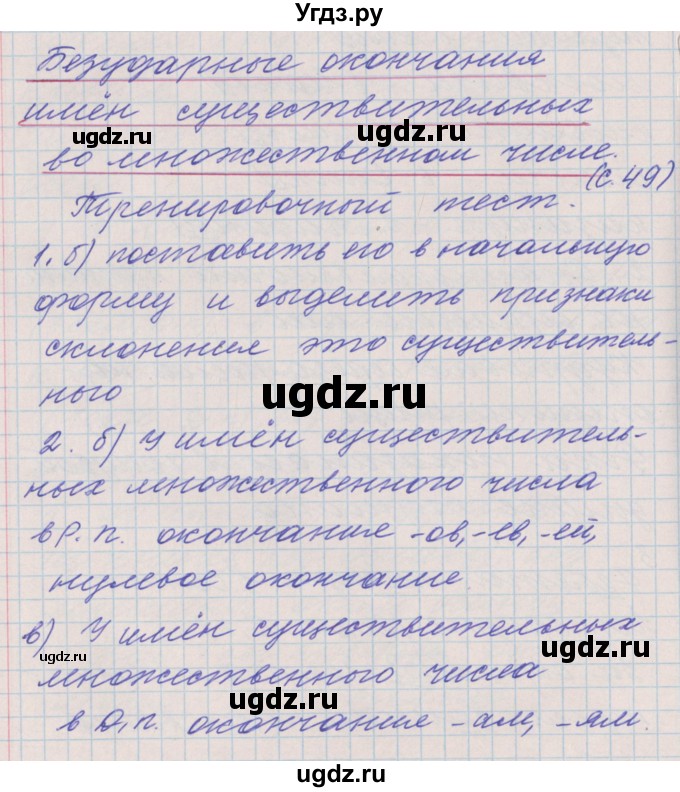 Угдз.ру
Безударные окончания
имён существительных
во множественном числе.
(с. 49)
Тренировочный тест.
1. б) поставить его в начальную
форму и выделить признаки
склонения это существитель-
ного
2. б) У имён существитель-
ных множественного числа
в Р. п. окончание -ов, -ев, -ей,
нулевое окончание
в) У имён существительных
множественного числа
в Д. п. окончание -ам, -ям.
ugdz.ru
ugdz.ru
ugdz.ru
ugdz.ru
ugdz.ru
ugdz.ru
ugdz.ru
ugdz.ru
ugdz.ru